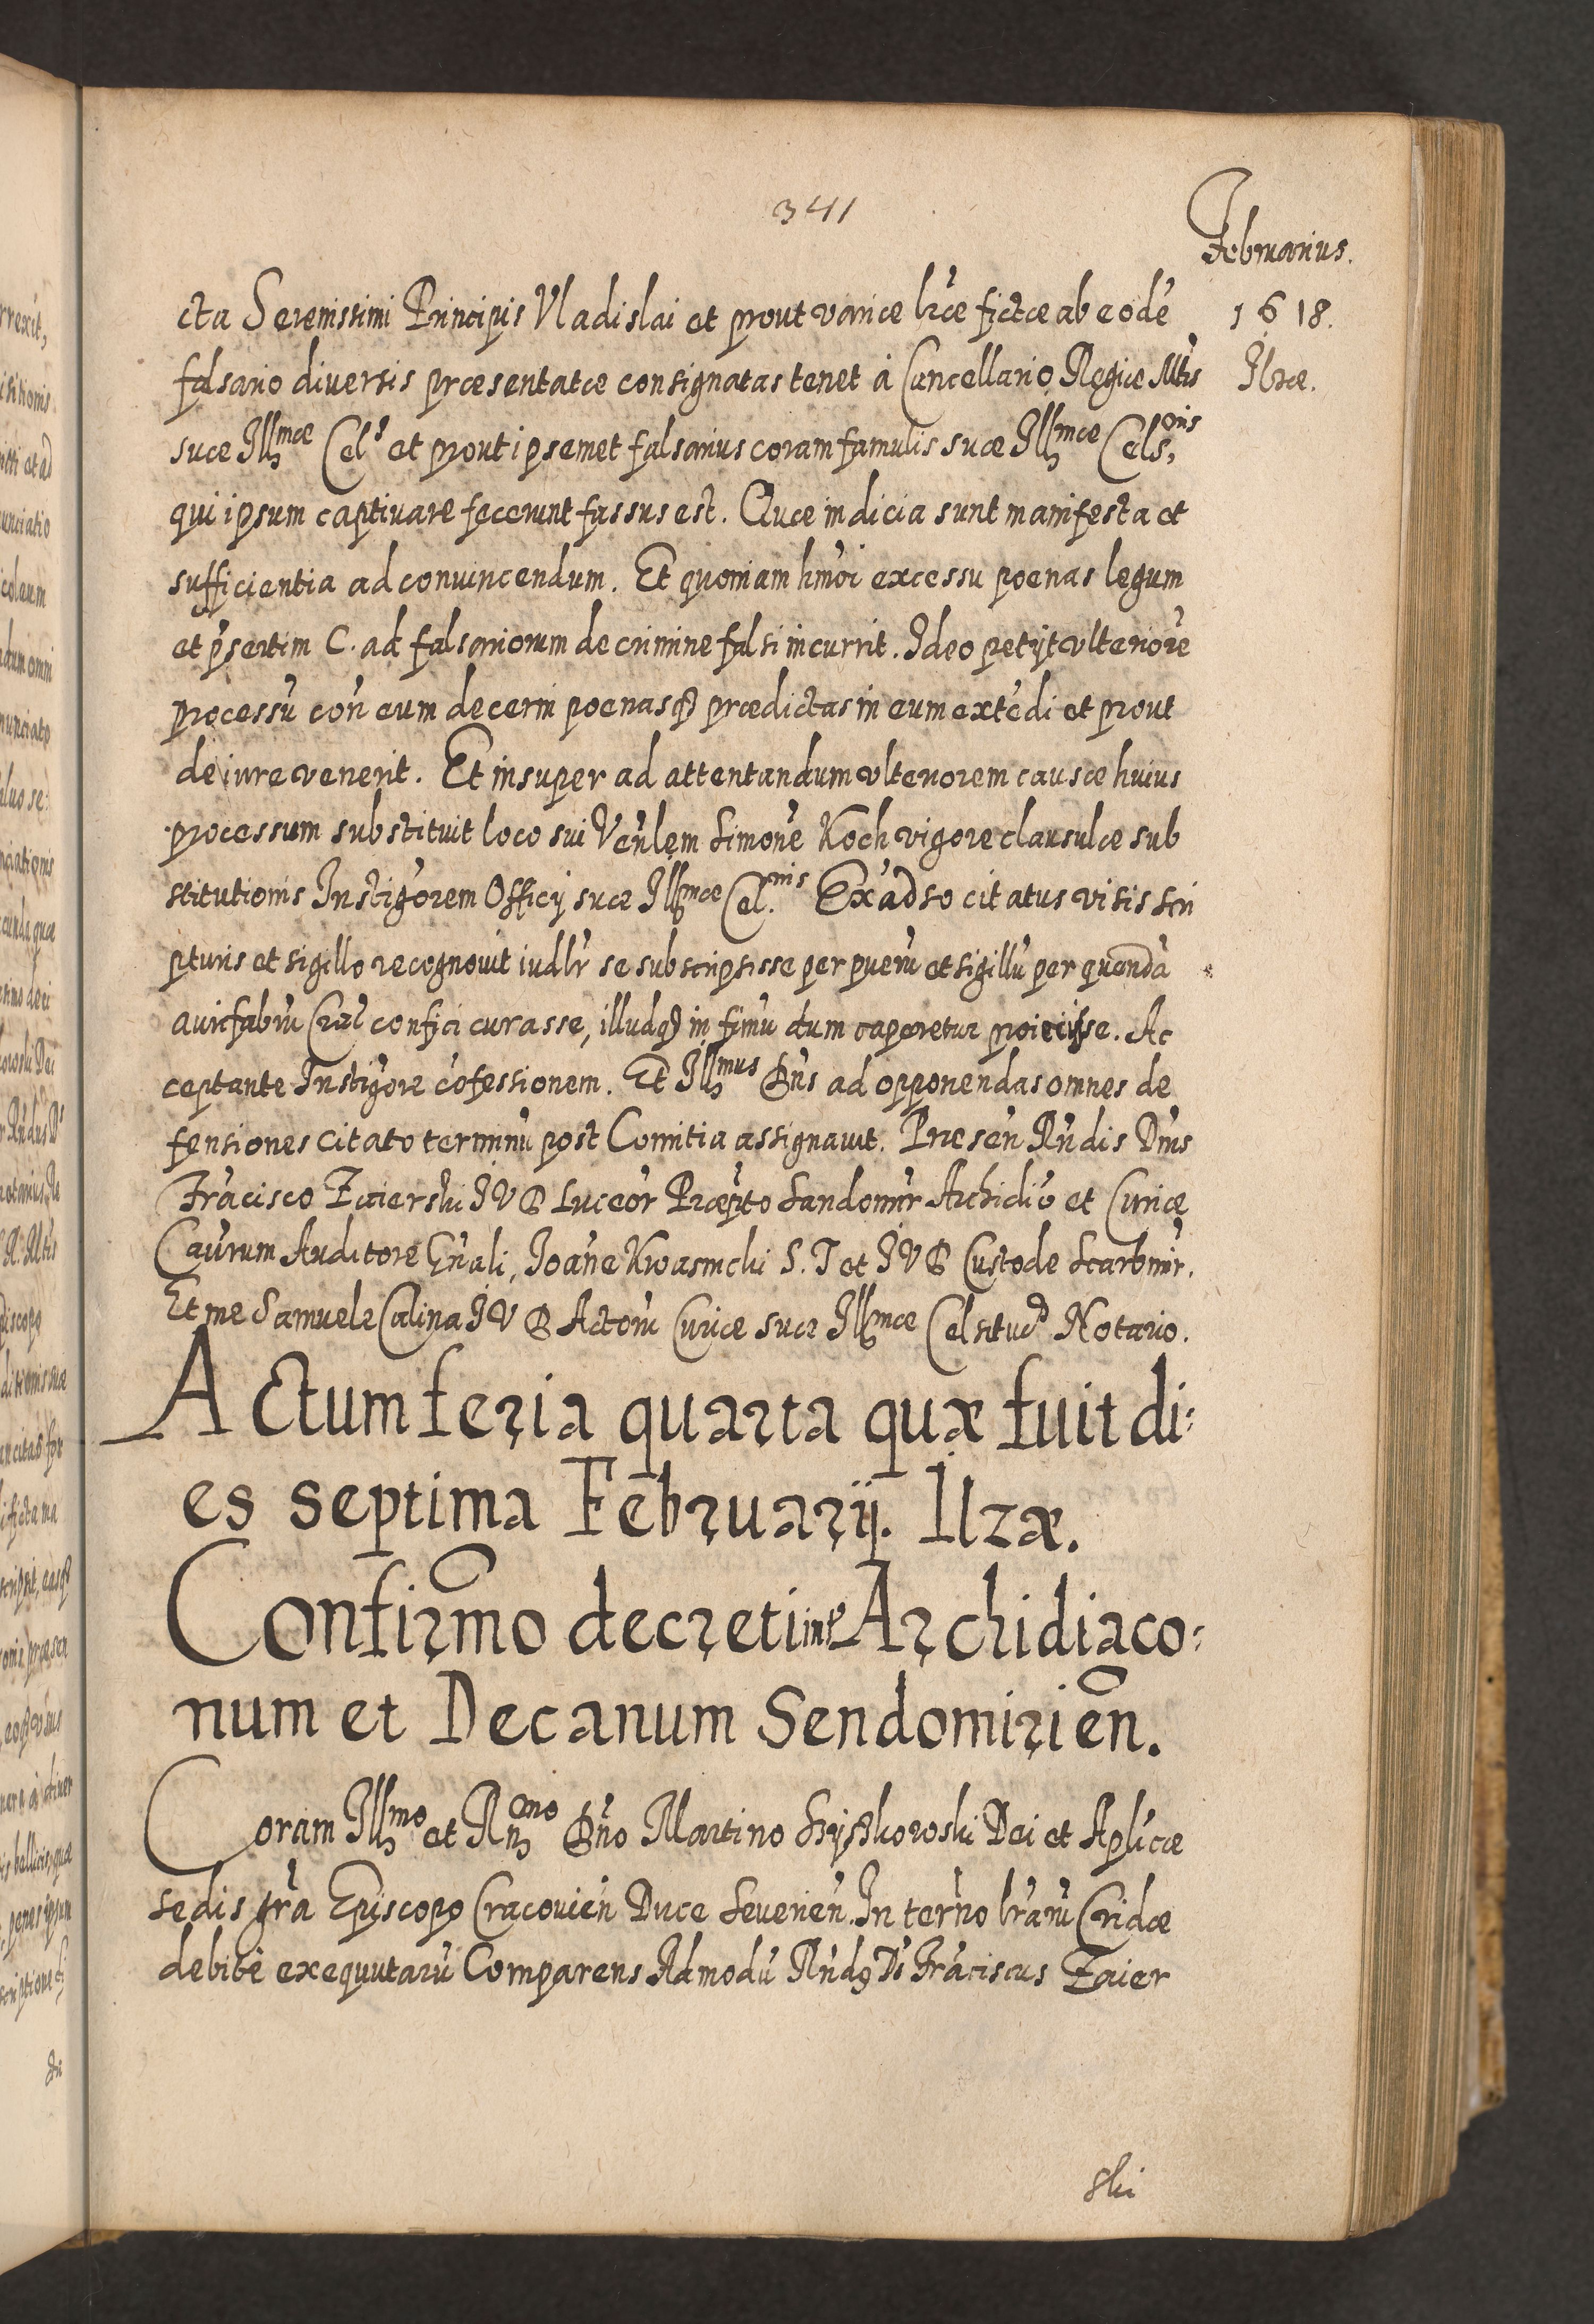 341
Februarius.
1618.
Ilzæ.
cta Serenissimi Principis Vladislai et prout variæ lræ fictæ ab eodē
falsario diversis præsentatæ consignatas tenet à Cancellario Regiæ Mtis
suæ Illmæ Cels et prout ipsemet falsarius coram famulis suæ Illmæ Celsonis,
qui ipsum captivare fecerunt fassus est. Quæ indicia sunt manifesta et
sufficientia ad convincendum. Et quoniam hmōi excessu poenas legum
et p̄sertim C. ad falsariorum de crimine falsi incurrit. Ideo petijt vlteriorē
processū con̄ eum decerni poenasq; prædictas in eum extēdi et prout
de iure venerit. Et insuper ad attentandum vlteriorem causæ huius
processum substituit loco sui Ven̄lem Simonē Koch vigore clausulæ sub
stitutionis Instig̃orem Officij suæ Illmæ Cel.nis Ex adso citatus visis scri
pturis et sigillo recognovit iudlr se subscripsisse per puerū et sigillū per quendā
aurifabrū Cral confici curasse, illudq; in fimū dum caperetur proiecisse. Ac
ceptante Instig̃ore cōfessionem. Et Illmus Dn̄s ad opponendas omnes de
fensiones citato terminū post Comitia assignavit. Præsen Rn̄dis Dn̄is
Frācisco Zaierski I V D Luceor̄ Præpto Sandomir̄ Archidi° et Curiæ
Caūrum Auditore Gn̄ali, Joān̄e Kwasnicki S. T et I V D Custode Scarbimir̄.
Et me Samuele Calina I V D Actorū Curiæ suæ Illmæ Celsitud Notario.
Actum feria quarta quæ fuit di:
es septima Februarij. Ilzæ.
Confirm̄o decreti int̄ Archidiaco:
num et Decanum Sendomirien̄.
Coram Illmo et Rn̄mo Dn̄o Martino Szyszkowski Dei et Aplicæ
sedis gr̄a Episcopo Cracovien̄ Duce Severien̄. In ter̄no lr̄arū Cridæ
debitè exequutarū Comparens Admodū Rn̄dq Ds Frāciscus Zaier
ski